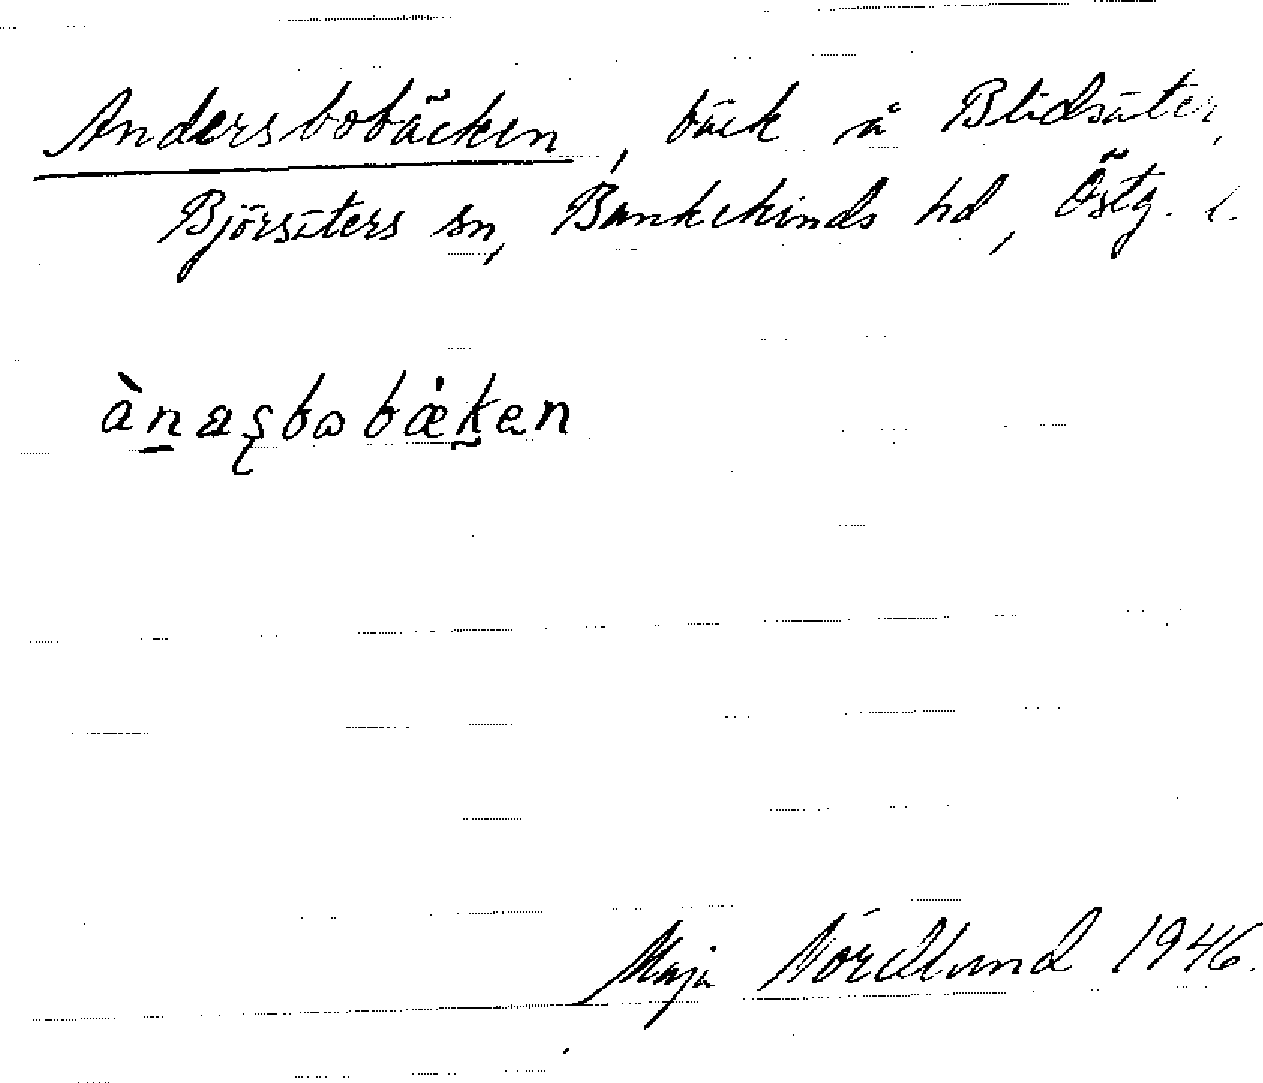 Andersbobäcken, bäck å Blidsäter,
Björsäters sn, Bankekinds hd, Östg. l.
ànaʂbobækɘn
Maja Nordlund 1946.